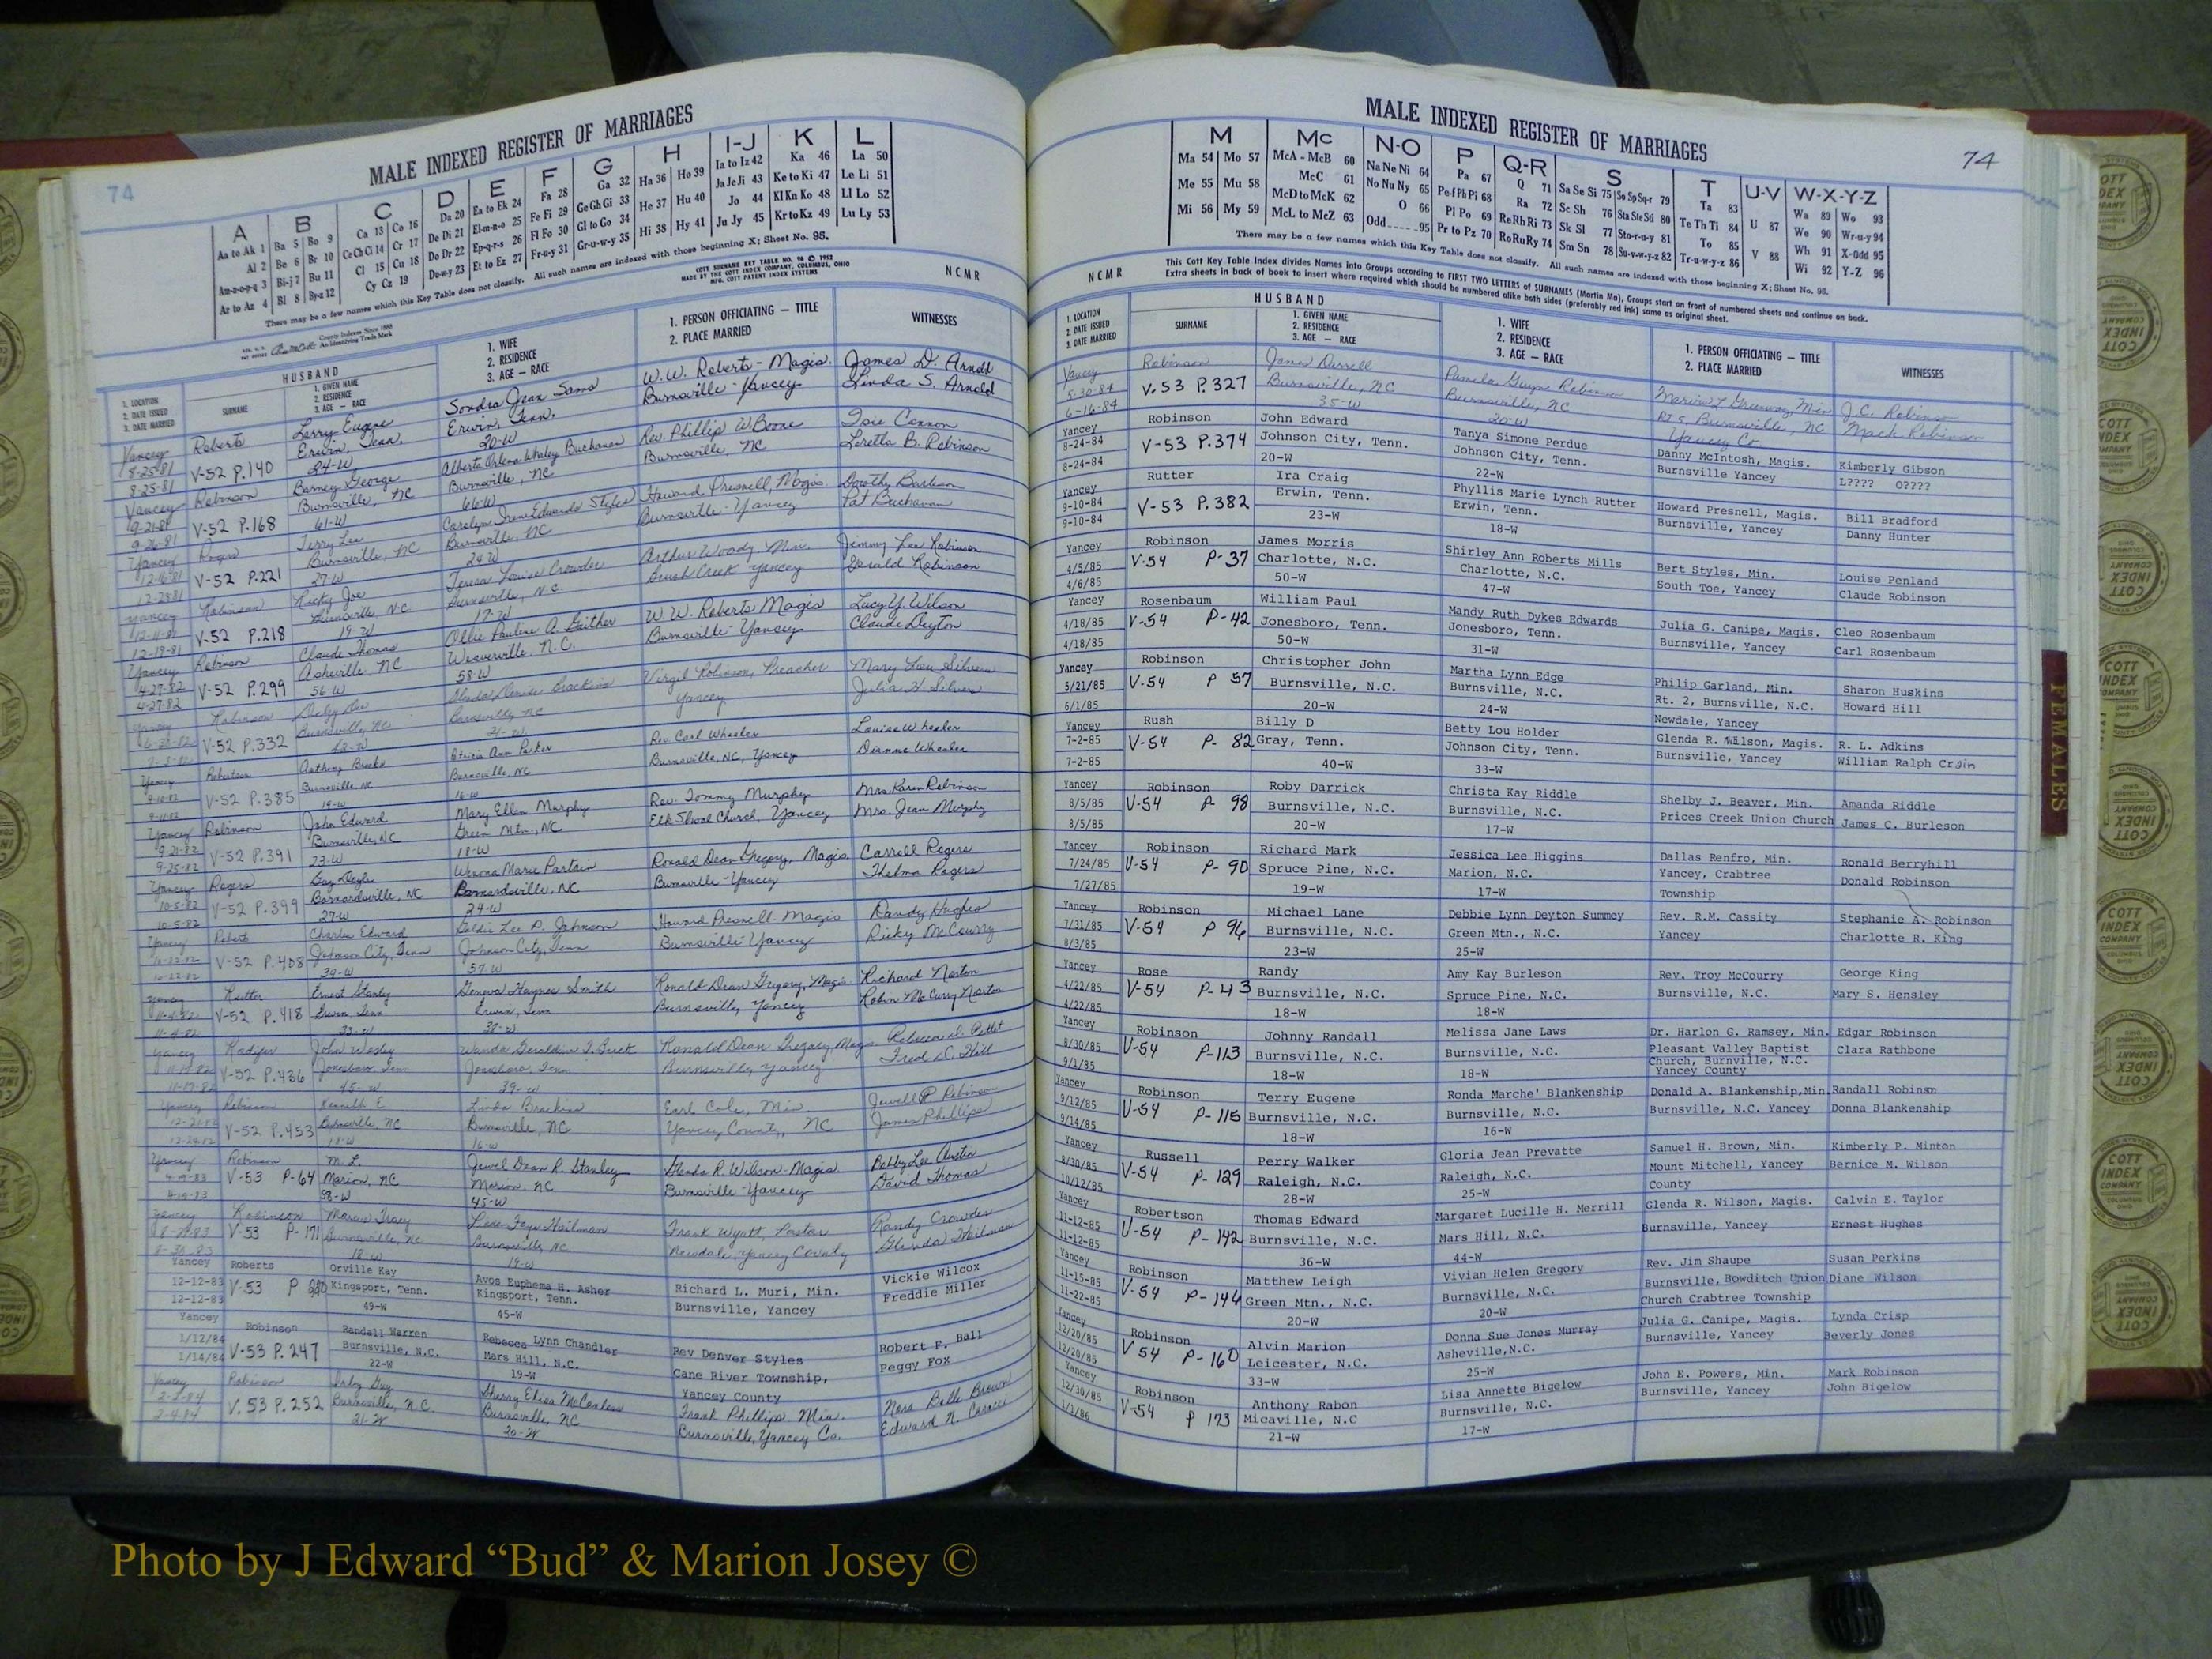 74
MALE INDEXED REGISTER OF MARRIAGES
A B C D E F G H I-J K L
There may be a few names which this Key Table does not classify. All such names are indexed with those beginning X; Sheet No. 95.
COTT SURNAME KEY TABLE NO. 96 © 1952
MADE BY THE COTT INDEX COMPANY, COLUMBUS, OHIO
MFG. COTT PATENT INDEX SYSTEMS
NCMR
HUSBAND
1. LOCATION 2. DATE ISSUED 3. DATE MARRIED
SURNAME
1. GIVEN NAME 2. RESIDENCE 3. AGE — RACE
1. WIFE 2. RESIDENCE 3. AGE — RACE
1. PERSON OFFICIATING — TITLE 2. PLACE MARRIED
WITNESSES
Yancey Roberts Larry Eugene Sondra Jean Sams W.W. Roberts - Magis. James D. Arndt
8-25-81 V-52 P.140 Erwin, Tenn. Erwin, Tenn. Burnsville - Yancey Linda S. Arnold
8-25-81 24-W 20-W
Yancey Robinson Barney George Buchanan Rev. Phillip W. Boone Cannon
9-21-81 V-52 P.168 Burnsville, NC Burnsville, NC Burnsville, NC Loretta B. Robinson
9-26-81 61-W 66-W
Yancey Rogers Terry Lee Carolyn Irene Edwards Styles Howard Presnell, Magis. Dorothy Barleson
V-52 P.221 Burnsville, NC Burnsville, NC Burnsville - Yancey Pat Buchanan
27-W 24-W
Yancey Robinson Ricky Joe Teresa Louise Crowder Arthur Woody, Min. Jimmy Lee Robinson
12-11-81 V-52 P.218 Burnsville, N.C. Burnsville, N.C. Brush Creek Yancey Gerald Robinson
12-19-81 19-W 17-W
Yancey Robinson Claude Thomas Ollie Pauline A. Gaither W.W. Roberts Magis Lucy Y. Wilson
4-27-82 V-52 P.299 Asheville, NC Weaverville, N.C. Burnsville - Yancey Claude Deyton
4-27-82 56-W 58-W
Yancey Robinson Virgil Robinson, Preacher Mary Lou Silvers
V-52 P.332 Burnsville, NC Burnsville, NC Yancey Julia H Silvers
Yancey Robertson Anthony Brooks Patricia Ann Parker Rev. Carl Wheeler Louise Wheeler
9-10-82 V-52 P.385 Burnsville, NC Burnsville, NC Burnsville, NC, Yancey Dianne Wheeler
9-11-82 19-W 16-W
Yancey Robinson John Edward Mary Ellen Murphy Rev. Tommy Murphy Mrs. Karen Robinson
9-21-82 V-52 P.391 Burnsville, NC Green Mtn., NC Elk Shoal Church, Yancey Mrs. Jean Murphy
9-25-82 23-W 18-W
Yancey Rogers Gay Doyle Wenona Marie Partain Ronald Dean Gregory, Magis. Carroll Rogers
10-5-82 V-52 P.399 Barnardsville, NC Barnardsville, NC Burnsville - Yancey Thelma Rogers
10-5-82 27-W 24-W
Yancey Roberts Charles Edward Goldie Lee P. Johnson Howard Presnell - Magis Randy Hughes
10-22-82 V-52 P.408 Johnson City, Tenn Johnson City, Tenn Burnsville - Yancey Ricky McCourry
10-22-82 39-W 57-W
Yancey Rutter Ernest Stanley Geneva Haynes Smith Ronald Dean Gregory, Magis Richard Norton
11-4-82 V-52 P.418 Erwin, Tenn Erwin, Tenn Burnsville, Yancey Robin McCurry Norton
11-4-82 33-W 38-W
Yancey John Wesley Wanda Geraldine T. Buck Ronald Dean Gregory, Magis Rebecca D. Pettit
V-52 P.436 Jonesboro, Tenn Jonesboro, Tenn Burnsville, Yancey Fred D. Hill
45-W 39-W
Yancey Robinson Kenneth E. Linda Braskins Earl Cole, Min. Jewell P Robinson
12-21-82 V-52 P.453 Burnsville, NC Burnsville, NC Yancey County, NC James Phillips
12-24-82 18-W 16-W
Yancey Robinson M. L. Jewel Dean R. Stanley Glenda R. Wilson - Magis Bobby Lee Austin
4-19-83 V-53 P-64 Marion, NC Marion, NC Burnsville - Yancey David Thomas
4-19-83 58-W 45-W
Yancey Robinson Tracy Lisa Faye Heilman Frank Wyatt, Pastor Randy Crowder
V-53 P-171 Burnsville, NC Burnsville, NC Newdale, Yancey County Glenda Heilman
18-W 19-W
Yancey Roberts Orville Kay Avos Euphema H. Asher Richard L. Muri, Min. Vickie Wilcox
12-12-83 V-53 P 220 Kingsport, Tenn. Kingsport, Tenn. Burnsville, Yancey Freddie Miller
12-12-83 49-W 45-W
Yancey Robinson Randall Warren Rebecca Lynn Chandler Rev Denver Styles Robert F. Ball
1/12/84 V-53 P. 247 Burnsville, N.C. Mars Hill, N.C. Cane River Township, Peggy Fox
1/14/84 22-W 19-W Yancey County
Yancey Robinson Guy Sherry Elisa McCanless Frank Phillips Min. Nora Belle Brown
2-2-84 V. 53 P. 252 Burnsville, N.C. Burnsville, NC Burnsville, Yancey Co. Edward N.
2-4-84 21-W 20-W
MALE INDEXED REGISTER OF MARRIAGES
74
M Mc N-O P Q-R S T U-V W-X-Y-Z
There may be a few names which this Key Table does not classify. All such names are indexed with those beginning X; Sheet No. 95.
NCMR
This Cott Key Table Index divides Names into Groups according to FIRST TWO LETTERS of SURNAMES (Martin Ma), Groups start on front of numbered sheets and continue on back.
Extra sheets in back of book to insert where required which should be numbered alike both sides (preferably red ink) same as original sheet.
HUSBAND
1. LOCATION 2. DATE ISSUED 3. DATE MARRIED
SURNAME
1. GIVEN NAME 2. RESIDENCE 3. AGE — RACE
1. WIFE 2. RESIDENCE 3. AGE — RACE
1. PERSON OFFICIATING — TITLE 2. PLACE MARRIED
WITNESSES
Yancey Robinson James Darrell Pamela Gwyn Robinson Marvin L Greenway, Min J.C. Robinson
5-30-84 V-53 P.327 Burnsville, NC Burnsville, NC Rt. 5, Burnsville, NC Mack Robinson
6-16-84 35-W 20-W Yancey Co
Yancey Robinson John Edward Tanya Simone Perdue Danny McIntosh, Magis. Kimberly Gibson
8-24-84 V-53 P.374 Johnson City, Tenn. Johnson City, Tenn. Burnsville Yancey L???? O????
8-24-84 20-W 22-W
Yancey Rutter Ira Craig Phyllis Marie Lynch Rutter Howard Presnell, Magis. Bill Bradford
9-10-84 V-53 P.382 Erwin, Tenn. Erwin, Tenn. Burnsville, Yancey Danny Hunter
9-10-84 23-W 18-W
Yancey Robinson James Morris Shirley Ann Roberts Mills Bert Styles, Min. Louise Penland
4/5/85 V-54 P-37 Charlotte, N.C. Charlotte, N.C. South Toe, Yancey Claude Robinson
4/6/85 50-W 47-W
Yancey Rosenbaum William Paul Mandy Ruth Dykes Edwards Julia G. Canipe, Magis. Cleo Rosenbaum
4/18/85 V-54 P-42 Jonesboro, Tenn. Jonesboro, Tenn. Burnsville, Yancey Carl Rosenbaum
4/18/85 50-W 31-W
Yancey Robinson Christopher John Martha Lynn Edge Philip Garland, Min. Sharon Huskins
5/21/85 V-54 P 57 Burnsville, N.C. Burnsville, N.C. Rt. 2, Burnsville, N.C. Howard Hill
6/1/85 20-W 24-W Newdale, Yancey
Yancey Rush Billy D Betty Lou Holder Glenda R. Wilson, Magis. R. L. Adkins
7-2-85 V-54 P- 82 Gray, Tenn. Johnson City, Tenn. Burnsville, Yancey William Ralph Crain
7-2-85 40-W 33-W
Yancey Robinson Roby Darrick Christa Kay Riddle Shelby J. Beaver, Min. Amanda Riddle
8/5/85 V-54 P- 98 Burnsville, N.C. Burnsville, N.C. Prices Creek Union Church James C. Burleson
8/5/85 20-W 17-W
Yancey Robinson Richard Mark Jessica Lee Higgins Dallas Renfro, Min. Ronald Berryhill
7/24/85 V-54 P- 90 Spruce Pine, N.C. Marion, N.C. Yancey, Crabtree Donald Robinson
7/27/85 19-W 17-W Township
Yancey Robinson Michael Lane Debbie Lynn Deyton Summey Rev. R.M. Cassity Stephanie A. Robinson
7/31/85 V-54 P 96 Burnsville, N.C. Green Mtn., N.C. Yancey Charlotte R. King
8/3/85 23-W 25-W
Yancey Rose Randy Amy Kay Burleson Rev. Troy McCourry George King
4/22/85 V-54 P-43 Burnsville, N.C. Spruce Pine, N.C. Burnsville, N.C. Mary S. Hensley
4/22/85 18-W 18-W
Yancey Robinson Johnny Randall Melissa Jane Laws Dr. Harlon G. Ramsey, Min. Edgar Robinson
8/30/85 V-54 P-113 Burnsville, N.C. Burnsville, N.C. Pleasant Valley Baptist Clara Rathbone
9/1/85 18-W 18-W Church, Burnville, N.C.
Yancey County
Yancey Robinson Terry Eugene Ronda Marche' Blankenship Donald A. Blankenship,Min. Randall Robinson
9/12/85 V-54 P- 115 Burnsville, N.C. Burnsville, N.C. Burnsville, N.C. Yancey Donna Blankenship
9/14/85 18-W 16-W
Yancey Russell Perry Walker Gloria Jean Prevatte Samuel H. Brown, Min. Kimberly P. Minton
8/30/85 V-54 P- 129 Raleigh, N.C. Raleigh, N.C. Mount Mitchell, Yancey Bernice M. Wilson
10/12/85 28-W 25-W County
Yancey Robertson Thomas Edward Margaret Lucille H. Merrill Glenda R. Wilson, Magis. Calvin E. Taylor
11-12-85 V-54 P- 142 Burnsville, N.C. Mars Hill, N.C. Burnsville, Yancey Ernest Hughes
11-12-85 36-W 44-W
Yancey Robinson Matthew Leigh Vivian Helen Gregory Rev. Jim Shaupe Susan Perkins
11-15-85 V-54 P- 144 Green Mtn., N.C. Burnsville, N.C. Burnsville, Bowditch Union Diane Wilson
11-22-85 20-W 20-W Church Crabtree Township
Yancey Robinson Alvin Marion Donna Sue Jones Murray Julia G. Canipe, Magis. Lynda Crisp
12/20/85 V 54 P- 160 Leicester, N.C. Asheville,N.C. Burnsville, Yancey Beverly Jones
12/20/85 33-W 25-W
Yancey Robinson Anthony Rabon Lisa Annette Bigelow John E. Powers, Min. Mark Robinson
12/30/85 V-54 P 173 Micaville, N.C Burnsville, N.C. Burnsville, Yancey John Bigelow
1/1/86 21-W 17-W
FEMALES
Photo by J Edward “Bud” & Marion Josey ©